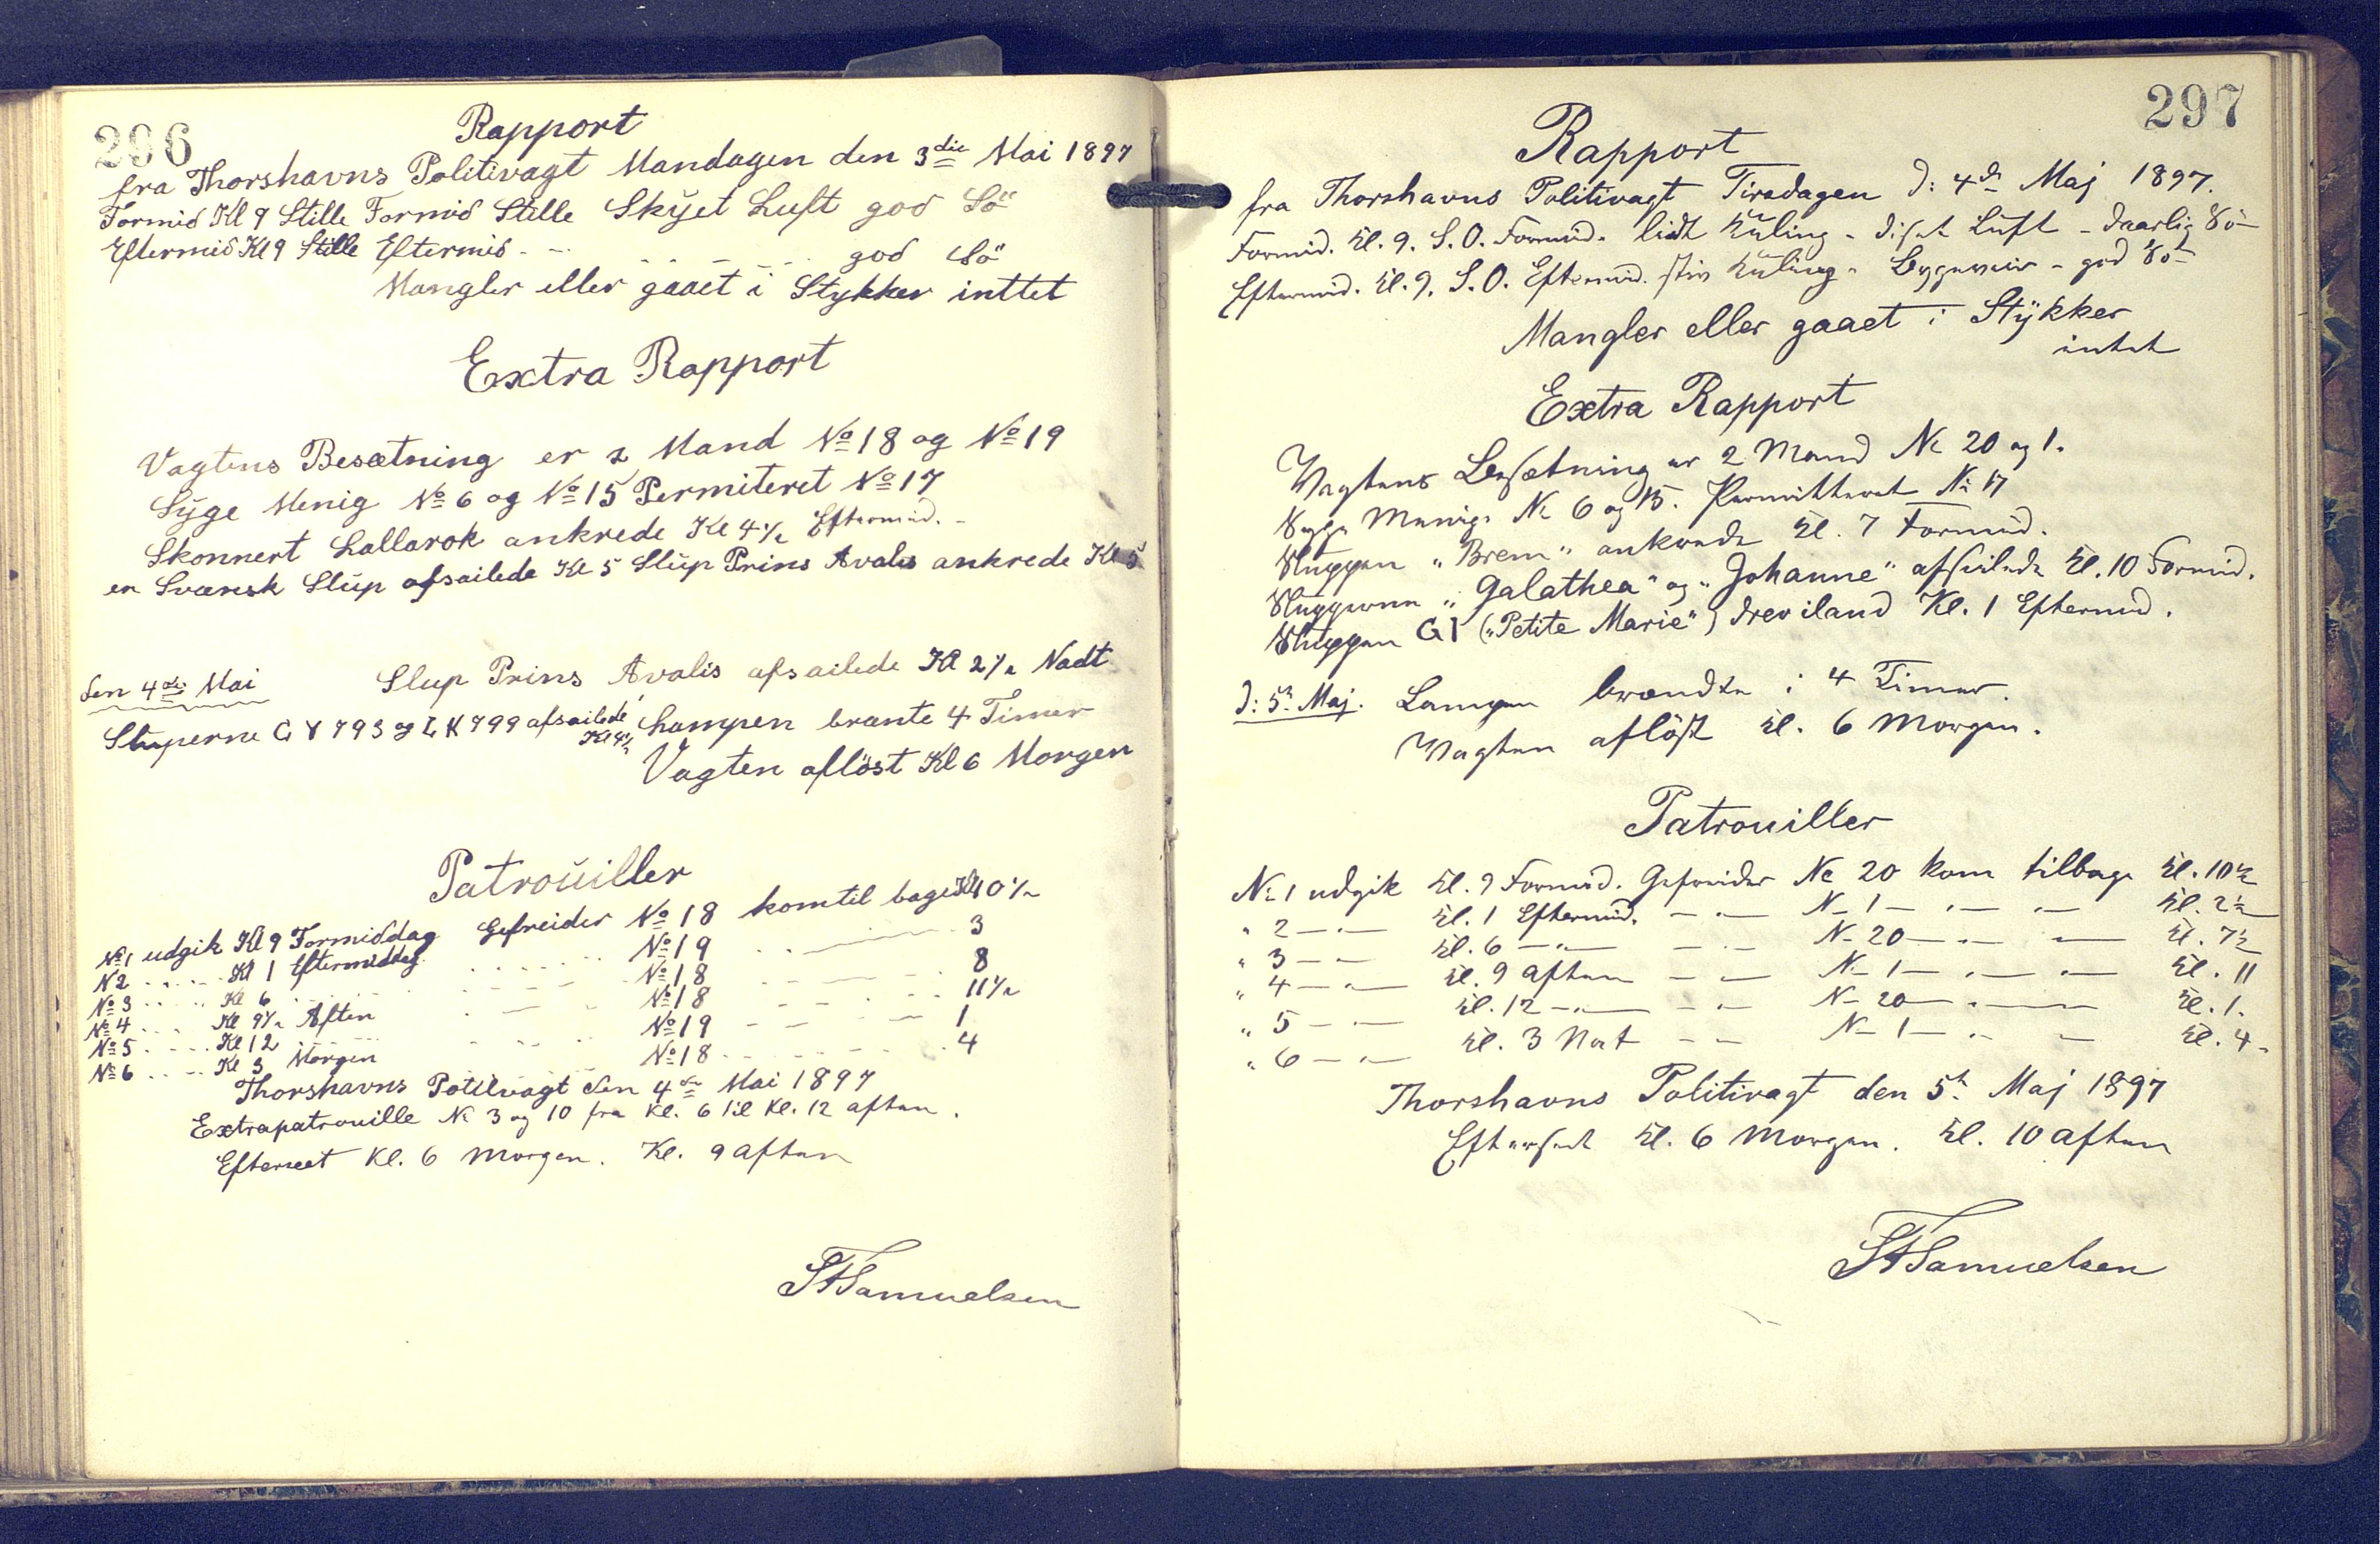 296
Rapport
fra Thorshavns Politivagt Mandagen den 3die Mai 1897
Formid Kl 9 Stille Formid Stille Skÿet Luft god Sö
Eftermid Kl 9 Stille Eftermid - - - - - - god Sö
Mangler eller gaaet i Stykker inttet
Extra Rapport
Vagtens Besætning er 2 Mand No 18 og No 19
Syge Menig No 6 og No 15 Permiteret No 17
Skonnert Lallarok ankrede Kl 4½ Eftermid. -
en Svænsk Slup afsailede Kl 5 Slup Prins Avalis ankrede Kl 5
den 4de Mai Slup Prins Avalis afsailede Kl 2½ Nadt
Sluperne G V 793 og L K 799 afsailede Kl 4½ Lampen brante 4 Timer
Vagten aflöst Kl 6 Morgen
Patrouiller
No 1 udgik Kl 9 Formiddag Gefreider No 18 kom til bage Kl 10½
N 2 - - - Kl 1 Eftermiddag - - - No 19 - - - 3
No 3 - - - Kl 6 - - - No 18 - - - 8
No 4 - - - Kl 9½ Aften - - - No 18 - - - 11½
No 5 - - - Kl 12 - - - No 19 - - - 1
No 6 - - - Kl 3 Morgen - - - No 18 - - - 4
Thorshavns Potilvagt den 4de Mai 1897
Extrapatrouille No 3 og 10 fra Kl. 6 til Kl. 12 aften.
Efterseet Kl. 6 Morgen. Kl. 9 aften
Samuelsen
297
Rapport
fra Thorshavns Politivagt Tirsdagen d: 4de Maj 1897.
Formid. Kl. 9. S.O. Formid. lidt Kuling - diset Luft - daarlig Sö -
Eftermid. Kl. 9. S.O. Eftermid. stiv Kuling - Bygeveir - god Sö -
Mangler eller gaaet i Stÿkker
intet
Extra Rapport
Vagtens Besætning er 2 Mand No 20 og 1.
Syge Menige No 6 og 15. Permitteret No 17
Sluppen „Brem“ ankrede Kl. 7 Formid.
Slupperne „Galathea“ og „Johanne“ afseilede Kl. 10 Formid.
Sluppen G I („Petite Marie“) drev iland Kl. 1 Eftermid.
d: 5te Maj. Lampen brændte i 4 Timer.
Vagten aflöst Kl. 6 Morgen.
Patrouiller
No 1 udgik Kl. 9 Formid. Gefreider No 20 kom tilbage Kl. 10½
" 2 — " — Kl. 1 Eftermid. — " — N— 1 — " — " — Kl. 2½
" 3 — " — Kl. 6 — " — — " — N— 20 — " — " — Kl. 7½
" 4 — " — Kl. 9 Aften — " — N— 1 — " — " — Kl. 11
" 5 — " — Kl. 12 — " — — " — N— 20 — " — " — Kl. 1.
" 6 — " — Kl. 3 Nat — " — N— 1 — " — " — Kl. 4.
Thorshavns Politivagt den 5te Maj 1897
Efterset Kl. 6 Morgen. Kl. 10 aften
Samuelsen